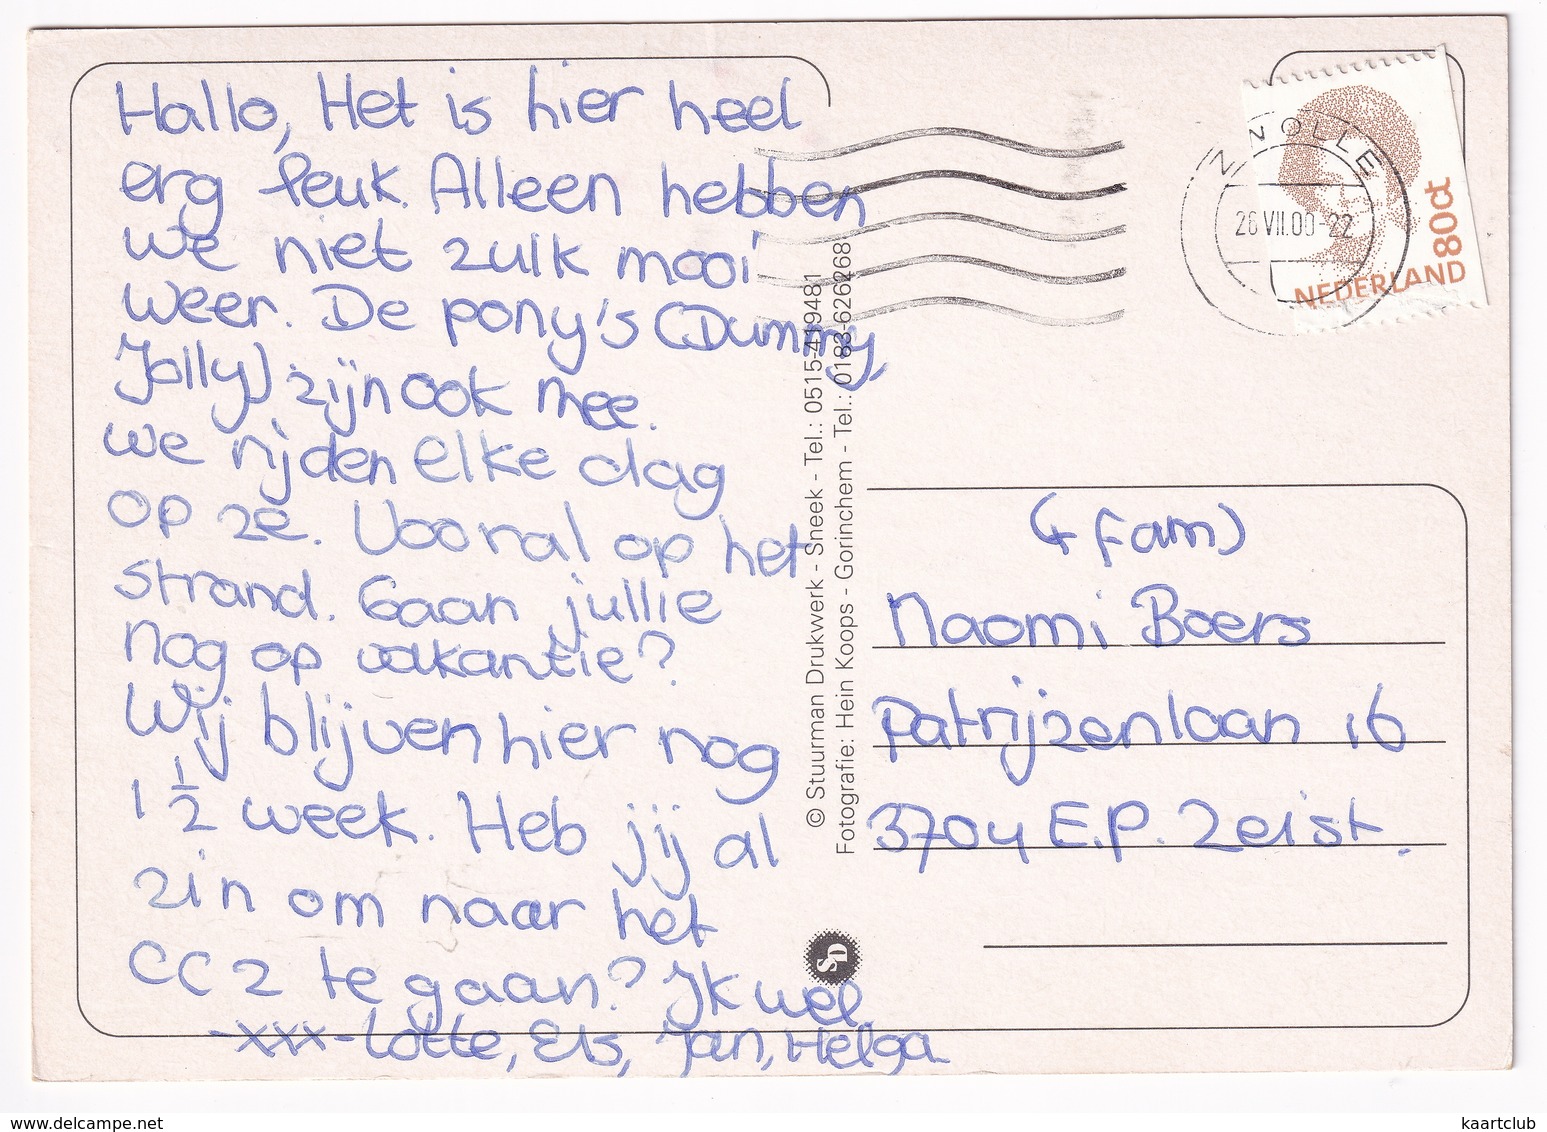 Hallo, Het is hier heel
erg leuk. Alleen hebben
we niet zulk mooi
weer. De pony's (Dummy,
Jolly) zijn ook mee.
we rijden elke dag
op ze. Vooral op het
strand. Gaan jullie
nog op vakantie?
Wij blijven hier nog
1 ½ week. Heb jij al
zin om naar het
CC2 te gaan? Ik wel.
-xxx- Lotte, Els, Jan, Helga
© Stuurman Drukwerk - Sneek - Tel.: 0515-419481
Fotografie: Hein Koops - Gorinchem - Tel.: 0183-626268
SD
ZWOLLE
26 VII.00-22
80ct
NEDERLAND
(+ fam)
Naomi Boers
Patrijzenlaan 16
3704 E.P. Zeist.
www.delcampe.net
kaartclub